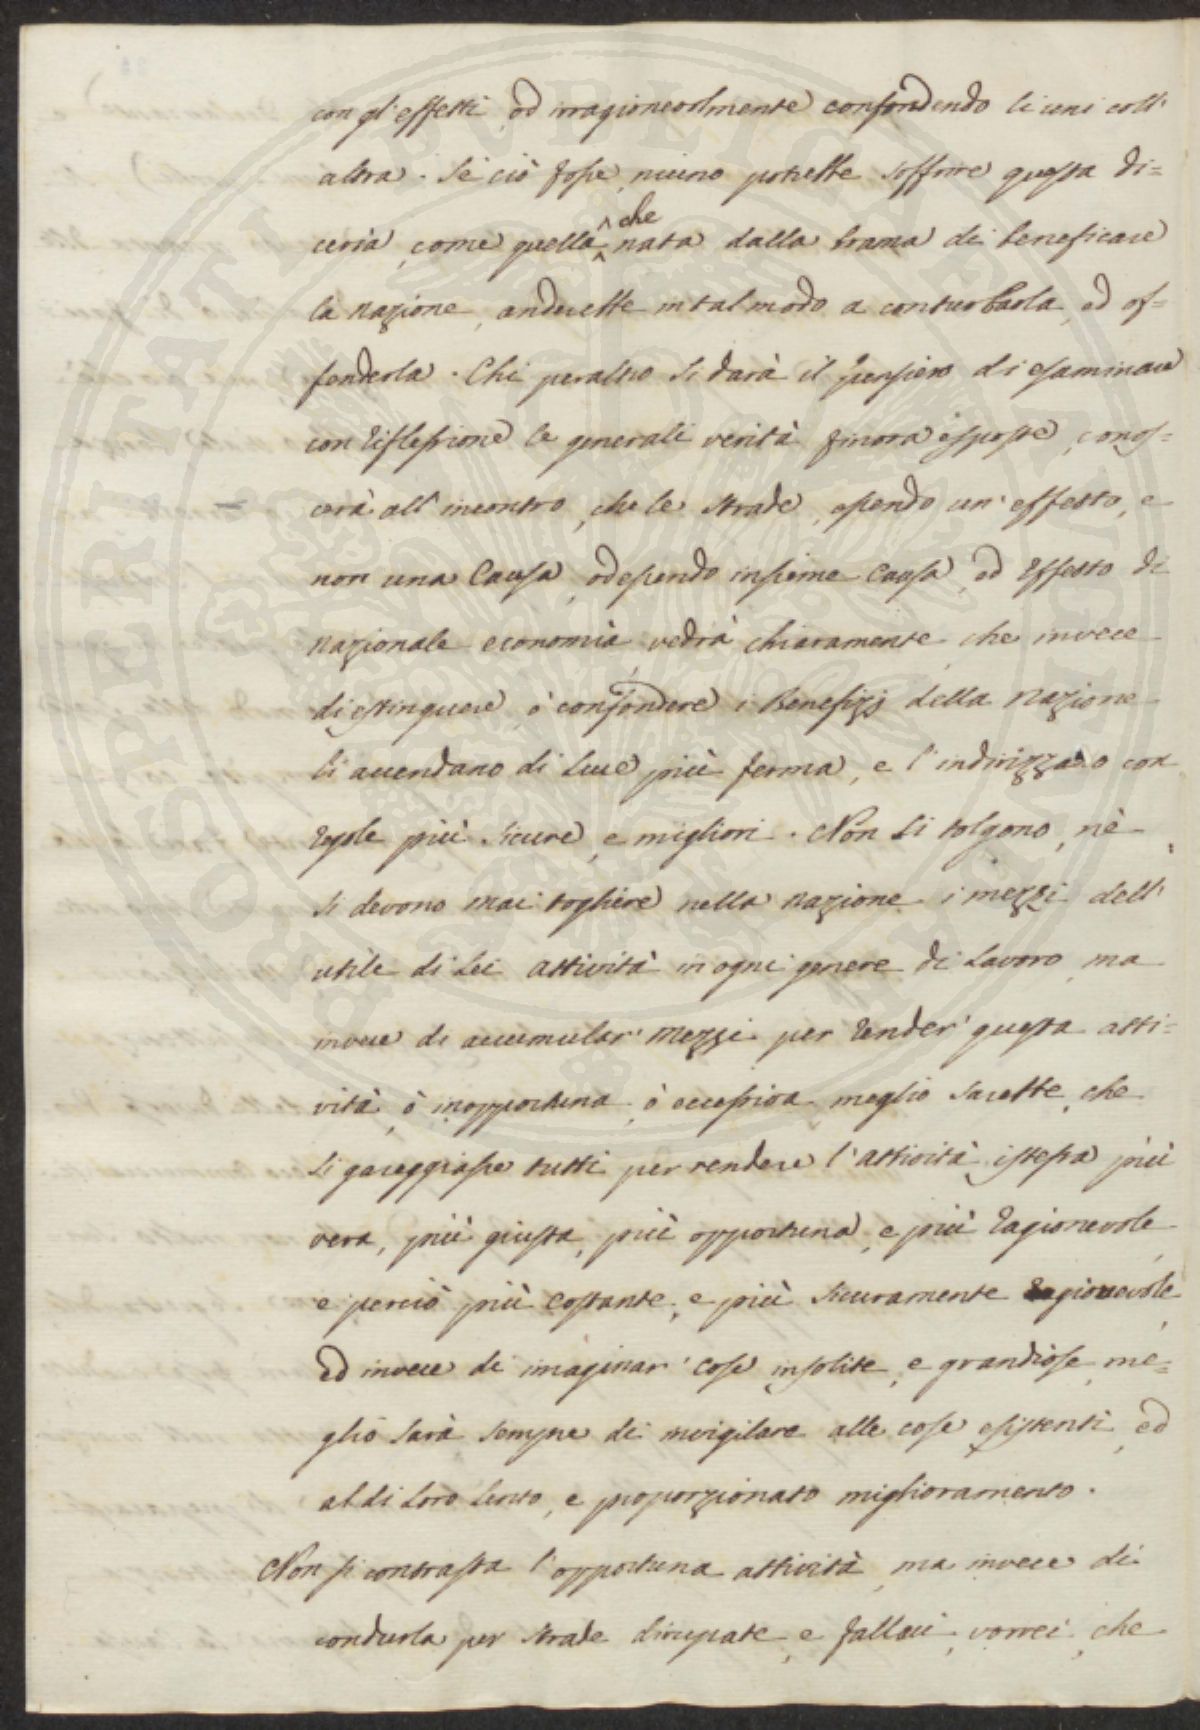 con gl'effetti, ed irragionevolmente confondendo li uni coll'
altra. Se ciò fosse, niuno potrebbe soffrire questa di=
ceria, come quella, che nata dalla brama di beneficare
la Nazione, anderebbe in tal modo a conturbarla, ed of=
fenderla. Chi peraltro si darà il pensiero di esaminare
con riflessione le generali verità finora esposte, conos=
cerà all'incontro, che le strade, essendo un'effetto, e
non una Causa, od essendo insieme Causa, ed Effetto di
Nazionale economia, vedrà chiaramente, che invece
di estinguere, ò confondere i Benefizj della Nazione
li accendano di luce più ferma, e l'indirizzano con
regole più sicure, e migliori. Non si tolgono, nè
si devono mai togliere nella Nazione i mezzi dell'
utile di Lei attività in ogni genere di Lavoro, ma
invece di accumular' mezzi per render' questa atti=
vità, ò inopportuna, ò eccessiva, meglio sarebbe, che
si gareggiasse tutti per rendere l'attività istessa più
vera, più giusta, più opportuna, e più ragionevole,
e perciò più costante, e più sicuramente ragionevole,
ed invece di imaginar' cose insolite, e grandiose, me=
glio sarà sempre di invigilare alle cose esistenti, ed
al di Loro lento, e proporzionato miglioramento.
Non si contrasta l'opportuna attività, ma invece di
condurla per strade dirupate, e fallaci, vorrei, che
PROSPERITATI PUBLICAE AUGENDAE